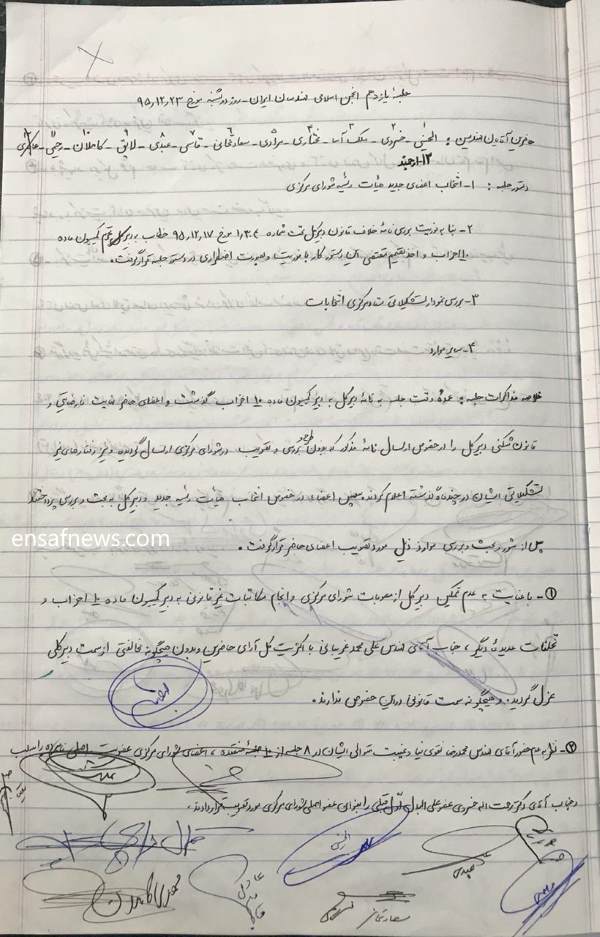 جلسه یازدهم انجمن اسلامی مهندسان ایران - روز دوشنبه مورخ ۹۵,۱۲,۲۳
حاضرین آقایان مهندسین : - خسروی - ملک آسا - مختاری - مرادی - سعادتخانی - قاسمی - عبدی - لایق - کاملان - رجبی -
۱۲-ارجمند
دستور جلسه : ۱- انتخاب اعضای جدید هیأت رئیسه شورای مرکزی
۲- بنا به فوریت بررسی نامه خلاف قانون دبیرکل تحت شماره ۱,۳۰۴ مورخ ۹۵,۱۲,۱۷ خطاب به دبیر کمیسیون ماده
۱۰ احزاب و اخذ تصمیم مقتضی این دستور کار با فوریت و بصورت اضطراری در دستور جلسه قرار گرفت.
۳- بررسی نمودار تشکیلاتی ستاد مرکزی انتخابات
۴- سایر موارد
خلاصه مذاکرات جلسه : عمده وقت جلسه به نامه دبیرکل به دبیر کمیسیون ماده ۱۰ احزاب گذشت و اعضای حاضر نهایت نارضایتی و
قانون شکنی دبیرکل را در خصوص ارسال نامه مذکور که بدون طرح و بررسی و تصویب در شورای مرکزی ارسال گردیده و نیز رفتارهای غیر
تشکیلاتی ایشان در چند ماه گذشته اعلام کردند و سپس اعضاء در خصوص انتخاب هیأت رئیسه جدید و دبیرکل به بحث و بررسی پرداختند
پس از شور و بحث و بررسی موارد ذیل مورد تصویب اعضای حاضر قرار گرفت.
ensafnews.com
۱- با عنایت به عدم تمکین دبیرکل از مصوبات شورای مرکزی و انجام مکاتبات غیر قانونی به دبیر کمیسیون ماده ۱۰ احزاب و
تخلفات عدیده دیگر ، جناب آقای مهندس علی محمد غریبانی با اکثریت کل آرای حاضرین و بدون هیچگونه مخالفتی از سمت دبیرکلی
عزل گردید. و هیچگونه سمت قانونی در این خصوص ندارند.
۲- نظر به عدم حضور آقای مهندس محمدرضا تقوی نیا و غیبت متوالی ایشان در ۸ جلسه از ۱۰ جلسه منعقده ، اعضای شورای مرکزی عضویت اصلی نامبرده را سلب
و جناب آقای دکتر رحمت اله خسروی عضو علی البدل اول قبلی را بعنوان عضو اصلی شورای مرکزی مورد تصویب قرار دادند.